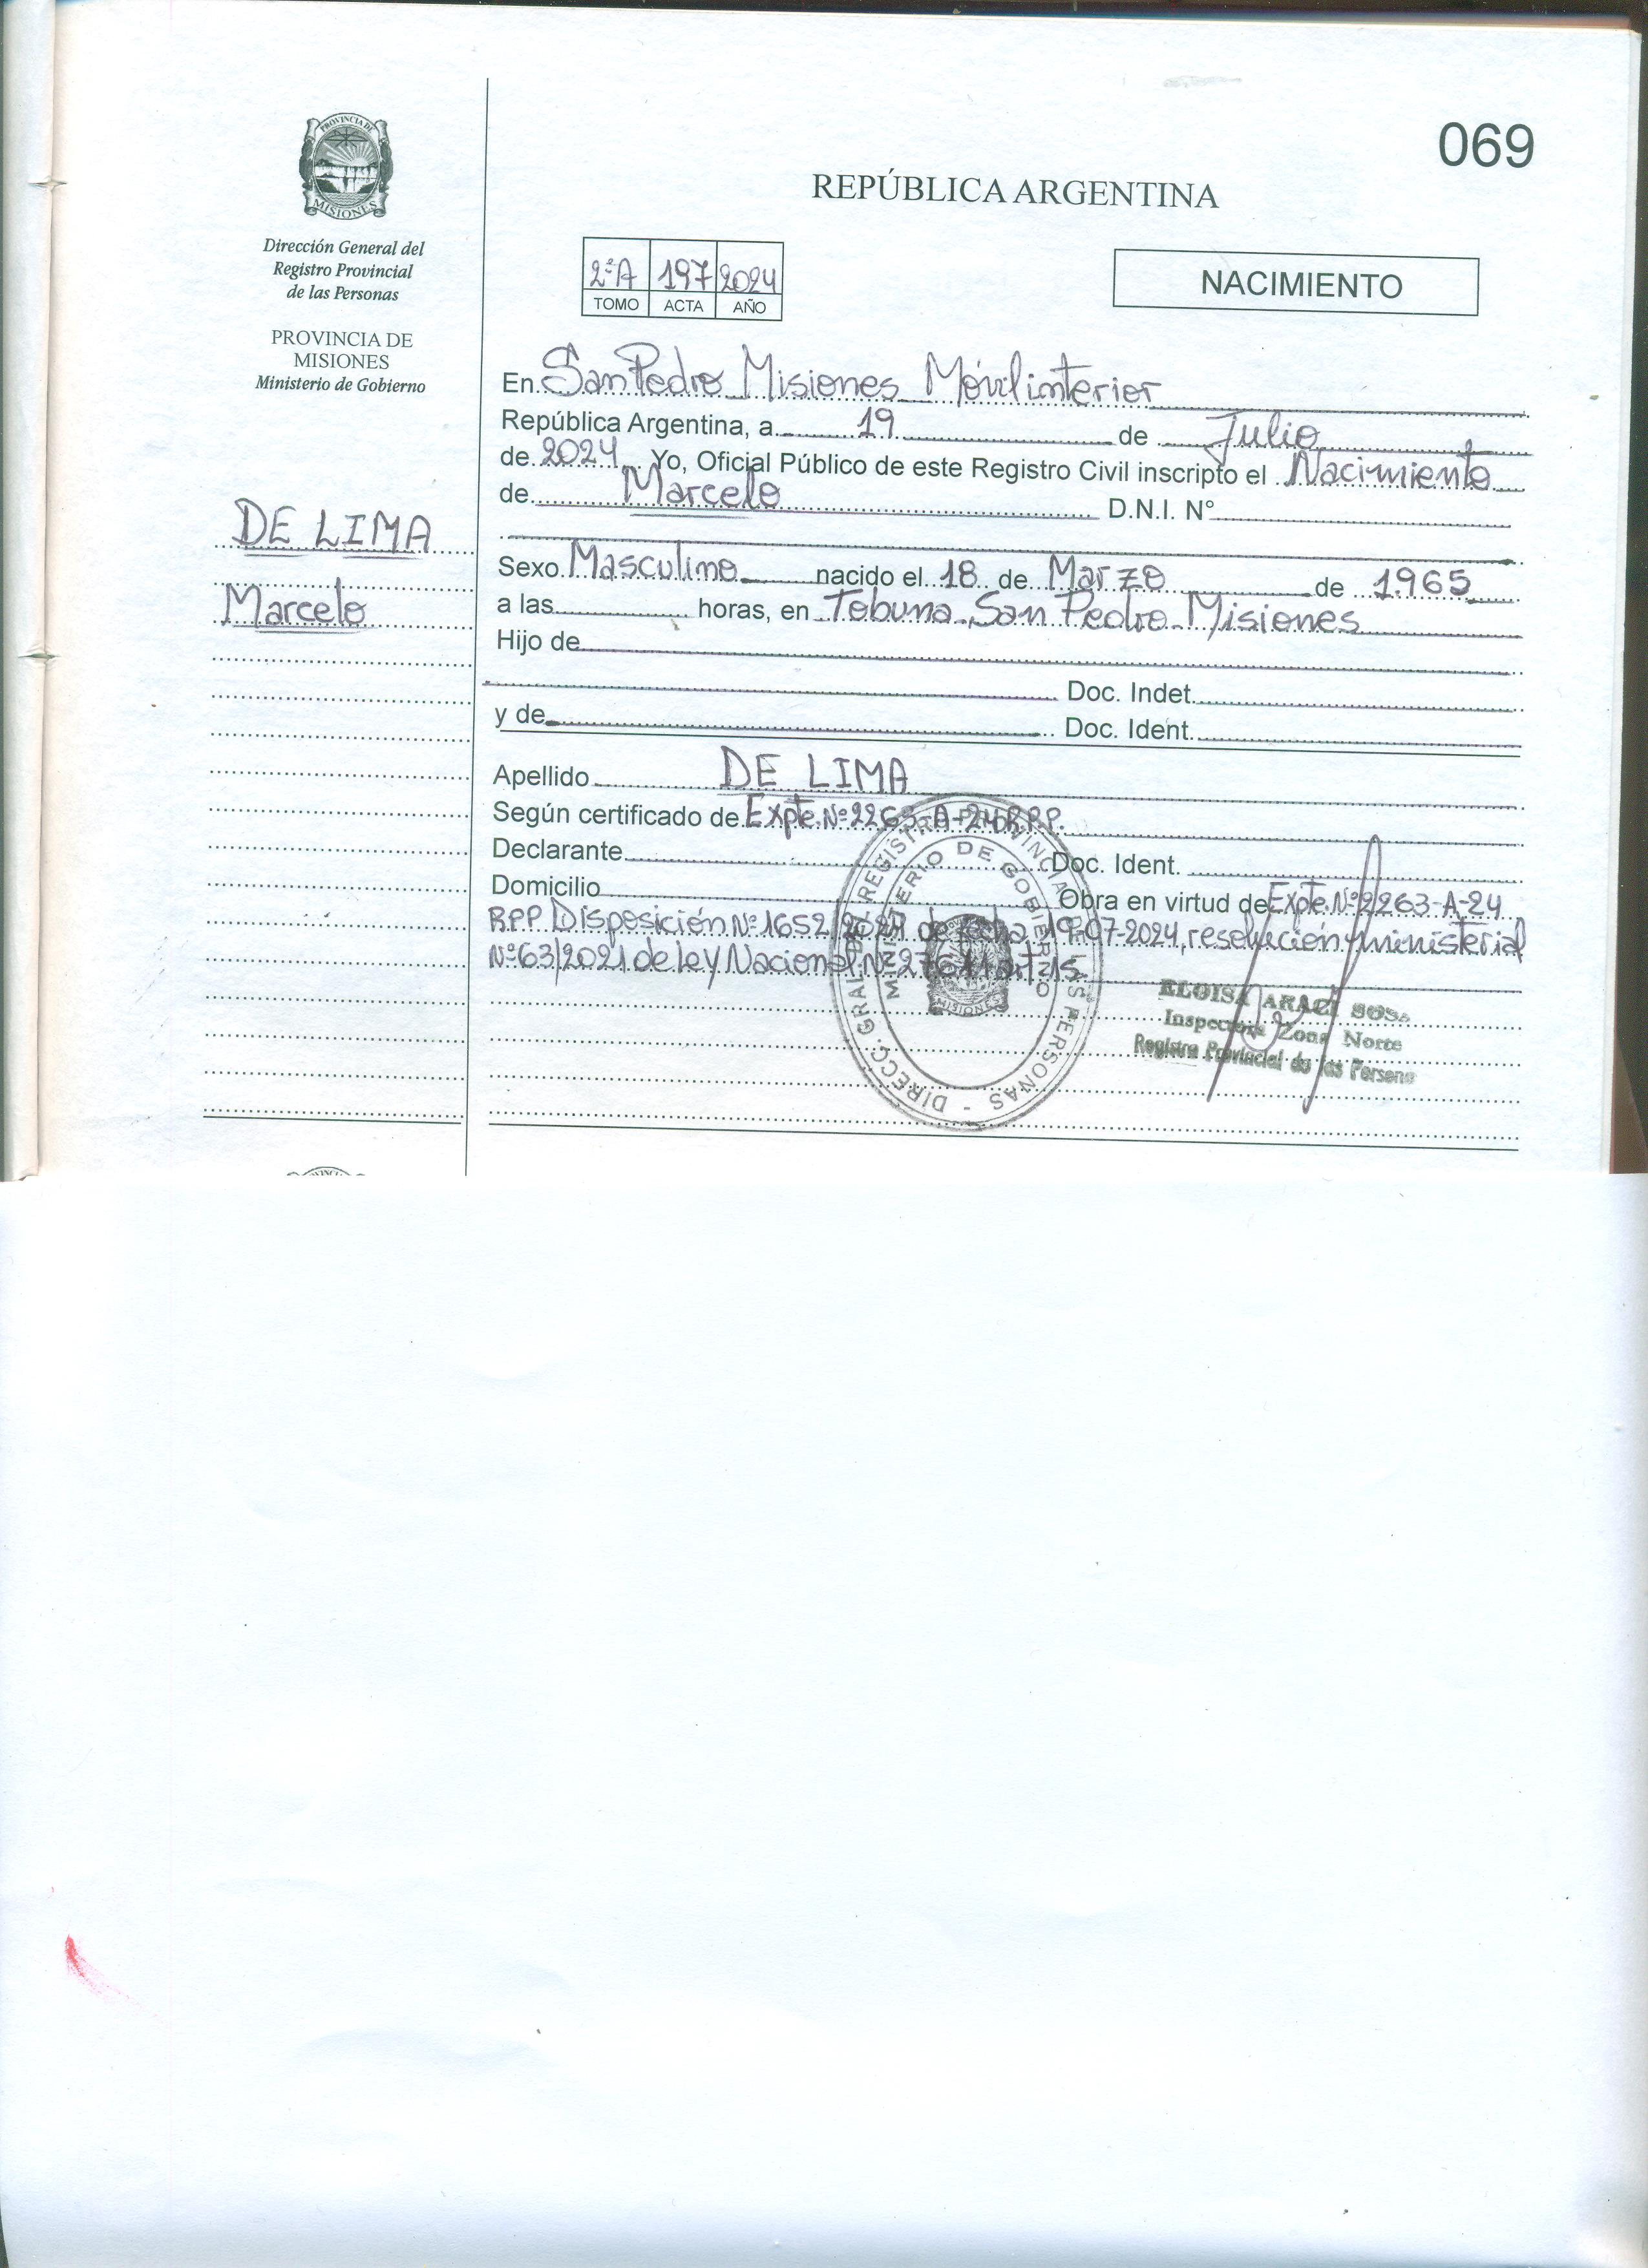 069
PROVINCIA DE
MISIONES
Dirección General del
Registro Provincial
de las Personas
PROVINCIA DE
MISIONES
Ministerio de Gobierno
DE LIMA
Marcelo
REPÚBLICA ARGENTINA
2ºA 197 2024
TOMO ACTA AÑO
NACIMIENTO
En San Pedro Misiones Móvil interior
República Argentina, a 19 de Julio
de 2024 Yo, Oficial Público de este Registro Civil inscripto el Nacimiento
de Marcelo D.N.I. N°
Sexo Masculino nacido el 18 de Marzo de 1965
a las horas, en Tobuna San Pedro Misiones
Hijo de
Doc. Indet.
y de Doc. Ident.
Apellido DE LIMA
Según certificado de Expte. Nº 2263-A-24 R.P.P.
Declarante Doc. Ident.
Domicilio Obra en virtud de Expte. Nº 2263-A-24
RPP Disposición Nº 1652/2024 de fecha 19-07-2024, resolución ministerial
Nº 63/2021 de Ley Nacional Nº 27611 art 15
DIRECC. GRAL. DEL REGISTRO PROVINCIAL DE LAS PERSONAS -
MINISTERIO DE GOBIERNO
MISIONES
ELOISA ARACI SOSA
Inspectora Zona Norte
Registro Provincial de las Persona